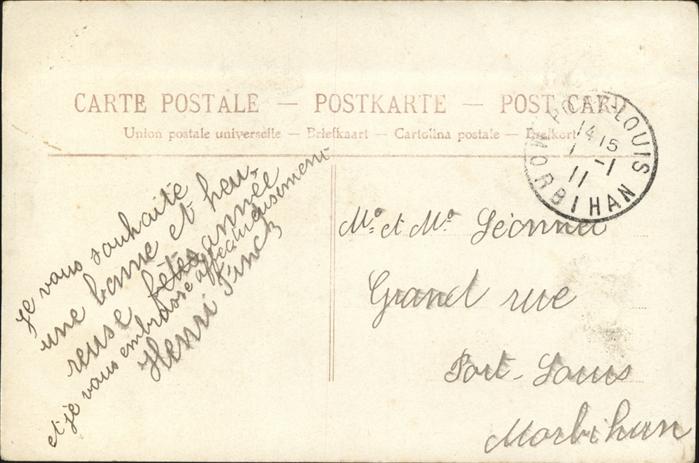 CARTE POSTALE — POSTKARTE — POST CARD
Union postale universelle — Briefkaart — Cartolina postale — Brefkort
PORT-LOUIS
14 15
1 -1
11
MORBIHAN
Je vous souhaite
une bonne et heu-
reuse fêtes année
et je vous embrasse affectueusement
Henri Finck
Mr. et Me. Léonnec
Grand rue
Port-Louis
Morbihan